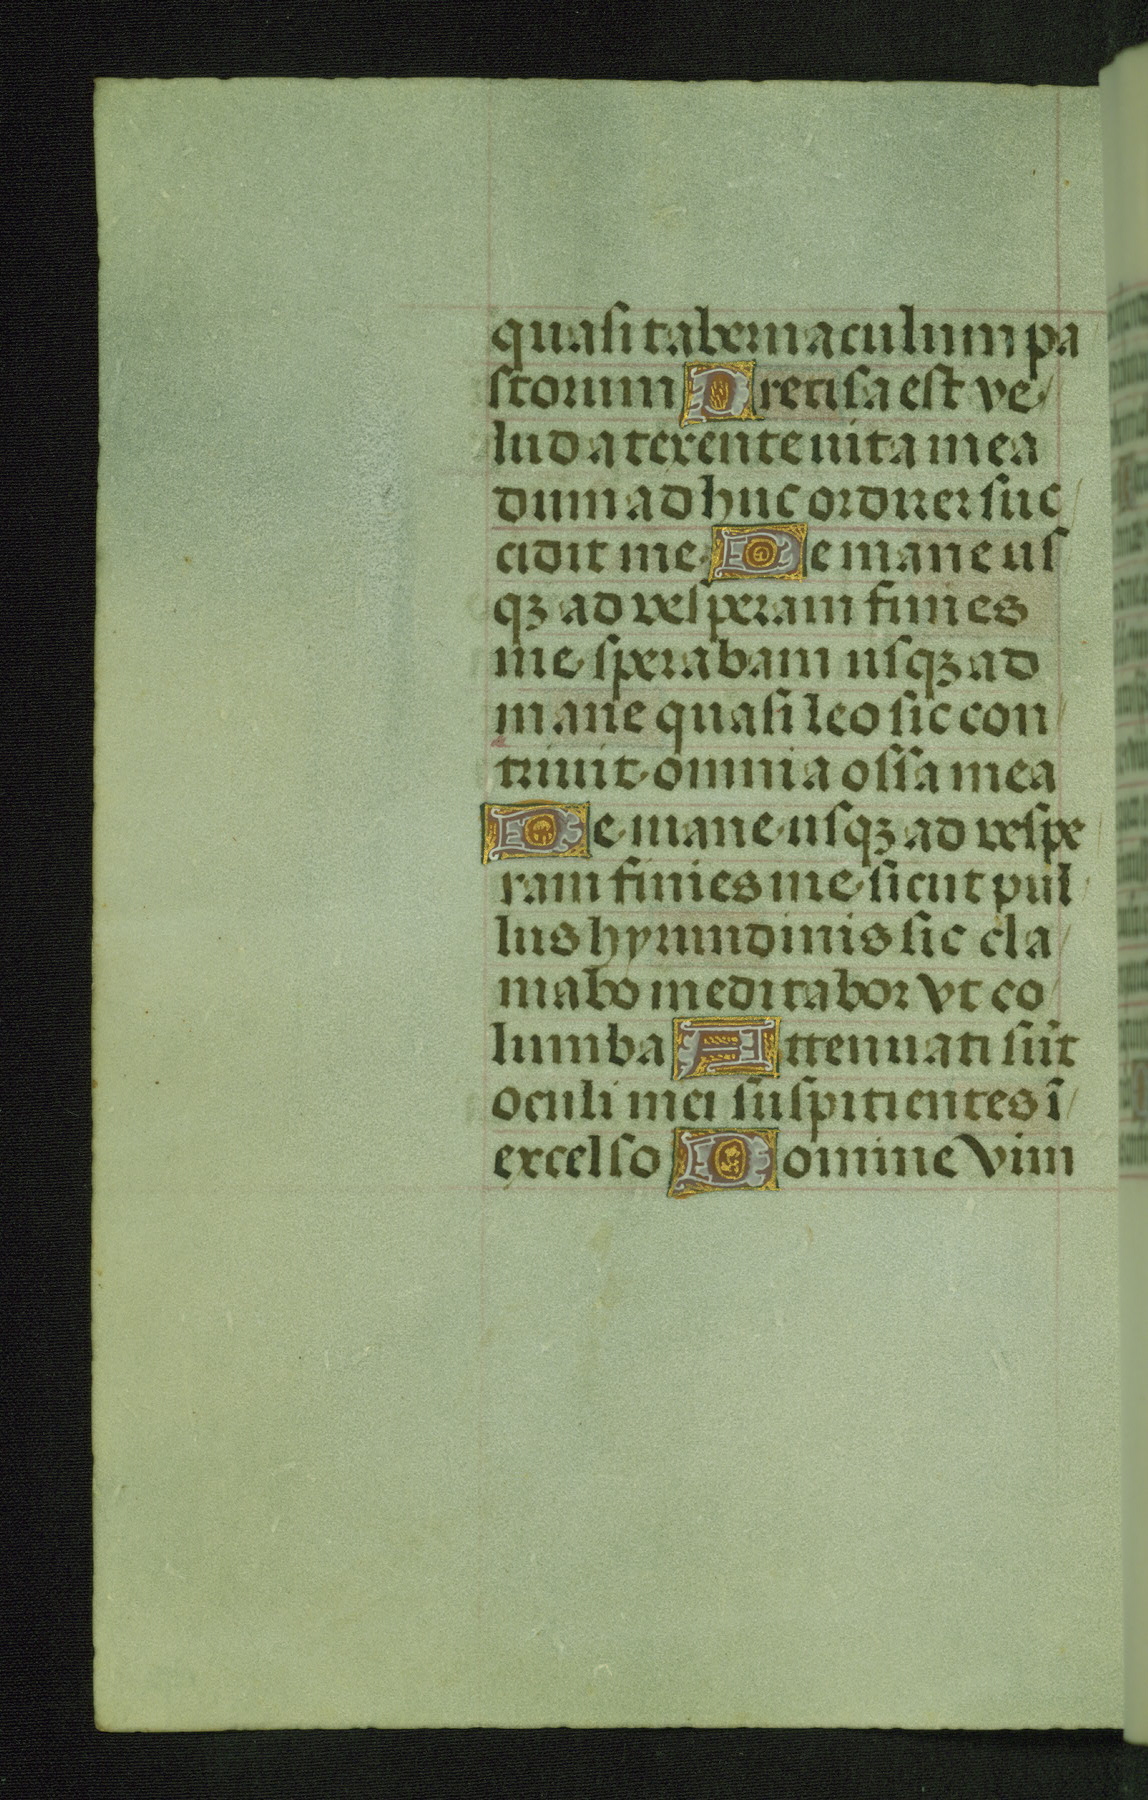 quasi tabernaculum pa
storum Precisa est ve
lud a texente uita mea
dum adhuc ordirer suc
cidit me De mane us
qz ad vesperam finies
me sperabam usqz ad
mane quasi leo sic con
triuit omnia ossa mea
De mane usqz ad vespe
ram finies me sicut pul
lus hyrundinis sic cla
mabo meditabor vt co
lumba Attenuati sūt
oculi mei suspitientes ī
excelso Domine vim